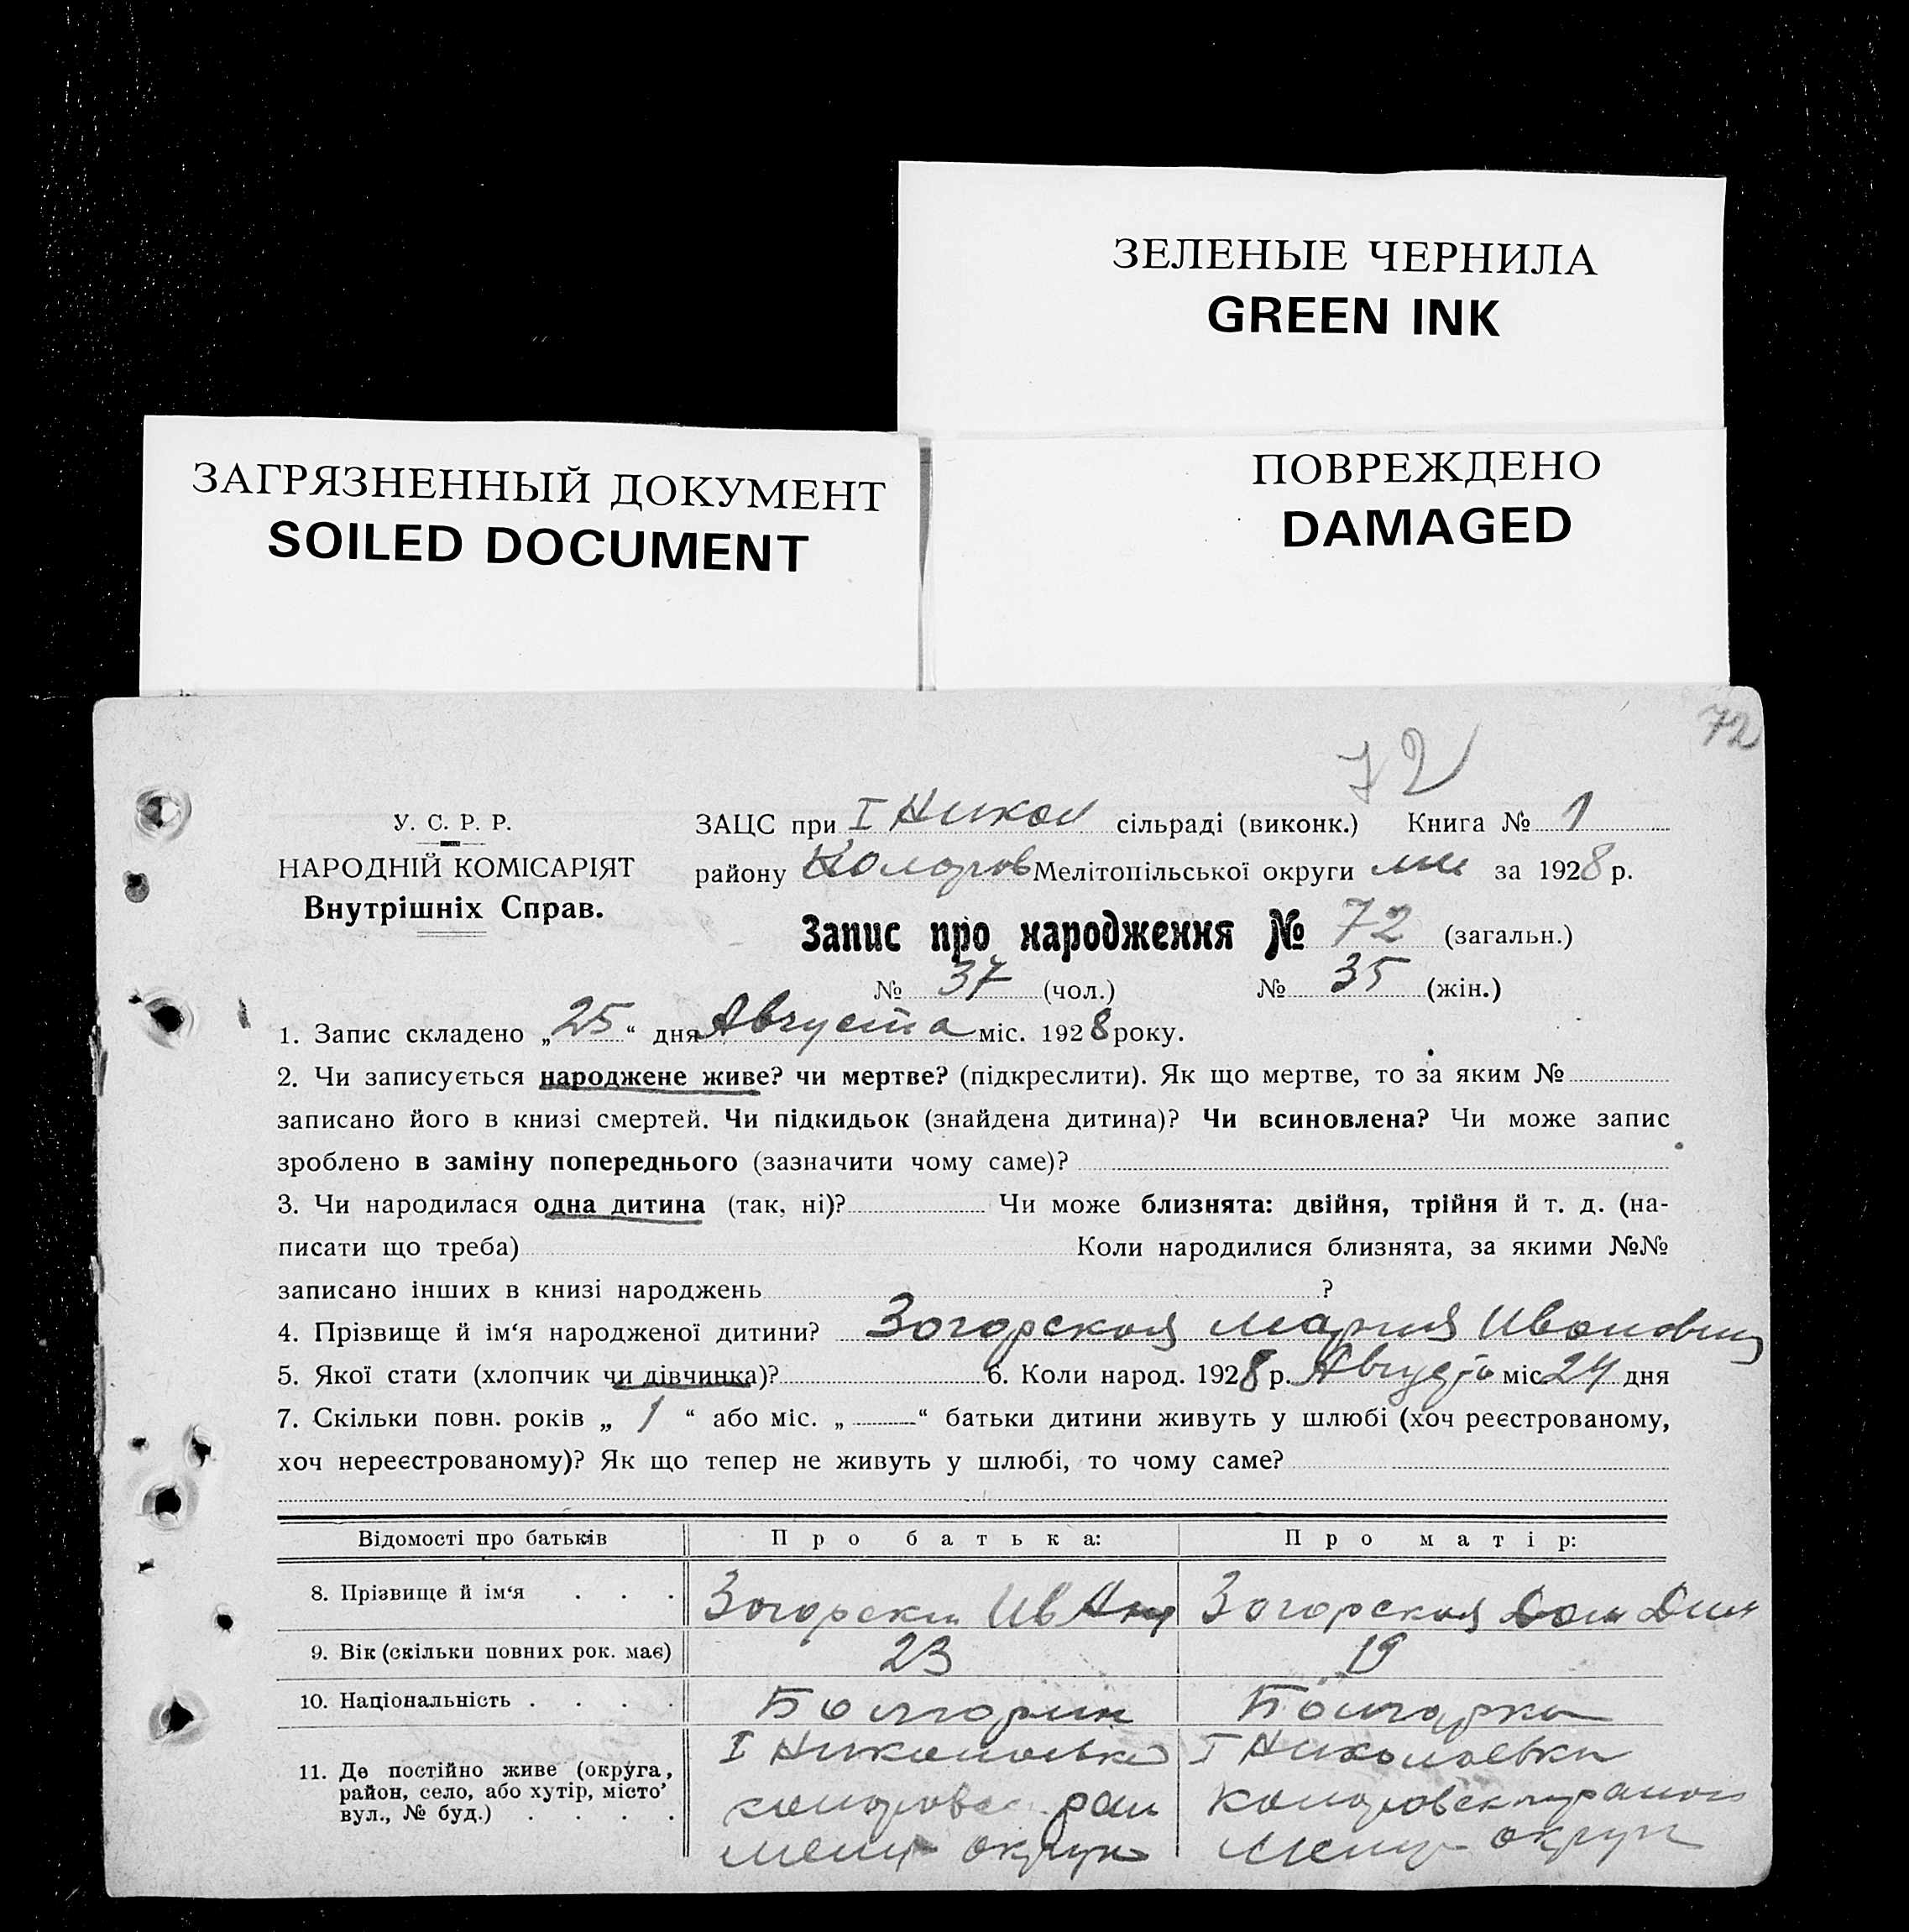 ЗЕЛЕНЫЕ ЧЕРНИЛА
GREEN INK
ЗАГРЯЗНЕННЫЙ ДОКУМЕНТ
SOILED DOCUMENT
ПОВРЕЖДЕНО
DAMAGED
72
72
У. С. Р. Р.
НАРОДНІЙ КОМІСАРІЯТ
Внутрішніх Справ.
ЗАЦС при I Никол сільраді (виконк.) Книга № 1
району Коларов Мелітопільської округи за 1928 р.
Запис про народження № 72 (загальн.)
№ 37 (чол.) № 35 (жін.)
1. Запис складено „25“ дня Августа міс. 1928 року.
2. Чи записується народжене живе? чи мертве? (підкреслити). Як що мертве, то за яким №
записано його в книзі смертей. Чи підкидьок (знайдена дитина)? Чи всиновлена? Чи може запис
зроблено в заміну попереднього (зазначити чому саме)?
3. Чи народилася одна дитина (так, ні)? Чи може близнята: двійня, трійня й т. д. (на-
писати що треба) Коли народилися близнята, за якими №№
записано інших в книзі народжень ?
4. Прізвище й ім‘я народженої дитини? Загорская Мария Ивановна
5. Якої стати (хлопчик чи дівчинка)? 6. Коли народ. 1928 р. Августа міс 24 дня
7. Скільки повн. років „ 1 “ або міс. „ “ батьки дитини живуть у шлюбі (хоч реєстрованому,
хоч нереєстрованому)? Як що тепер не живуть у шлюбі, то чому саме?
Відомості про батьків Про батька: Про матір:
8. Прізвище й ім‘я . . . Загорски Ив Загорская Дом
9. Вік (скільки повних рок. має) 23 19
10. Національність . . . . Болгарин Болгарка
I Николаевка I Николаевка
11. Де постійно живе (округа,
район, село, або хутір, місто’
вул., № буд.) . . . .
Коларовс раи Коларовск района
Мели округ Мели округ